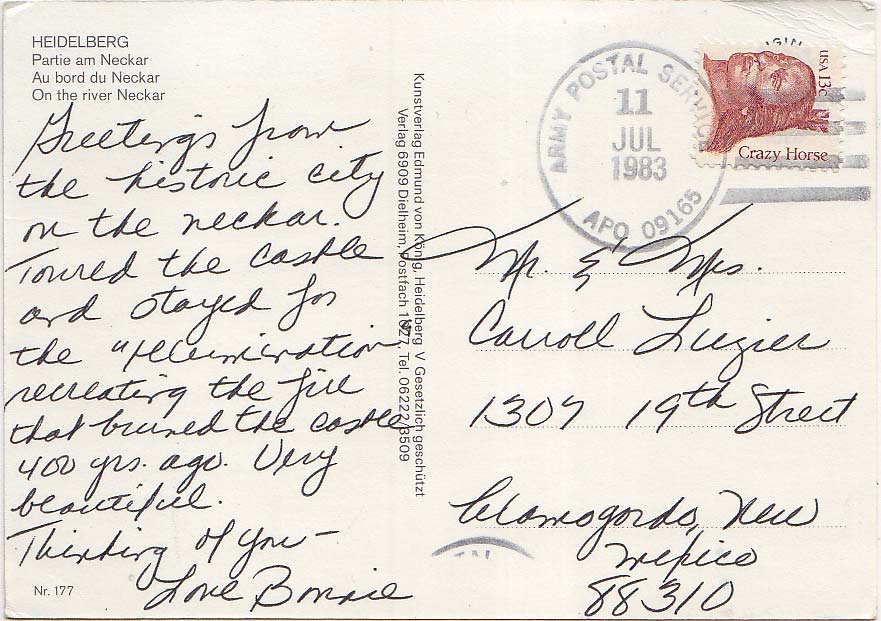 HEIDELBERG
Partie am Neckar
Au bord du Neckar
On the river Neckar
Greetings from
the historic city
on the neckar.
Toured the castle
and stayed for
the "Illumination"
recreating the fire
that burned the castle
400 yrs. ago. Very
beautiful.
Thinking of you –
Love Bonnie
Nr. 177
Kunstverlag Edmund von König, Heidelberg V Gesetzlich geschützt
Verlag 6909 Dielheim, Postfach 1027, Tel. 06222/3509
ARMY POSTAL SERVICE
11
JUL
1983
APO 09165
USA 13c
Crazy Horse
Mr. & Mrs.
Carroll Luzier
1307 19th Street
Alamogordo, New
Mexico
88310